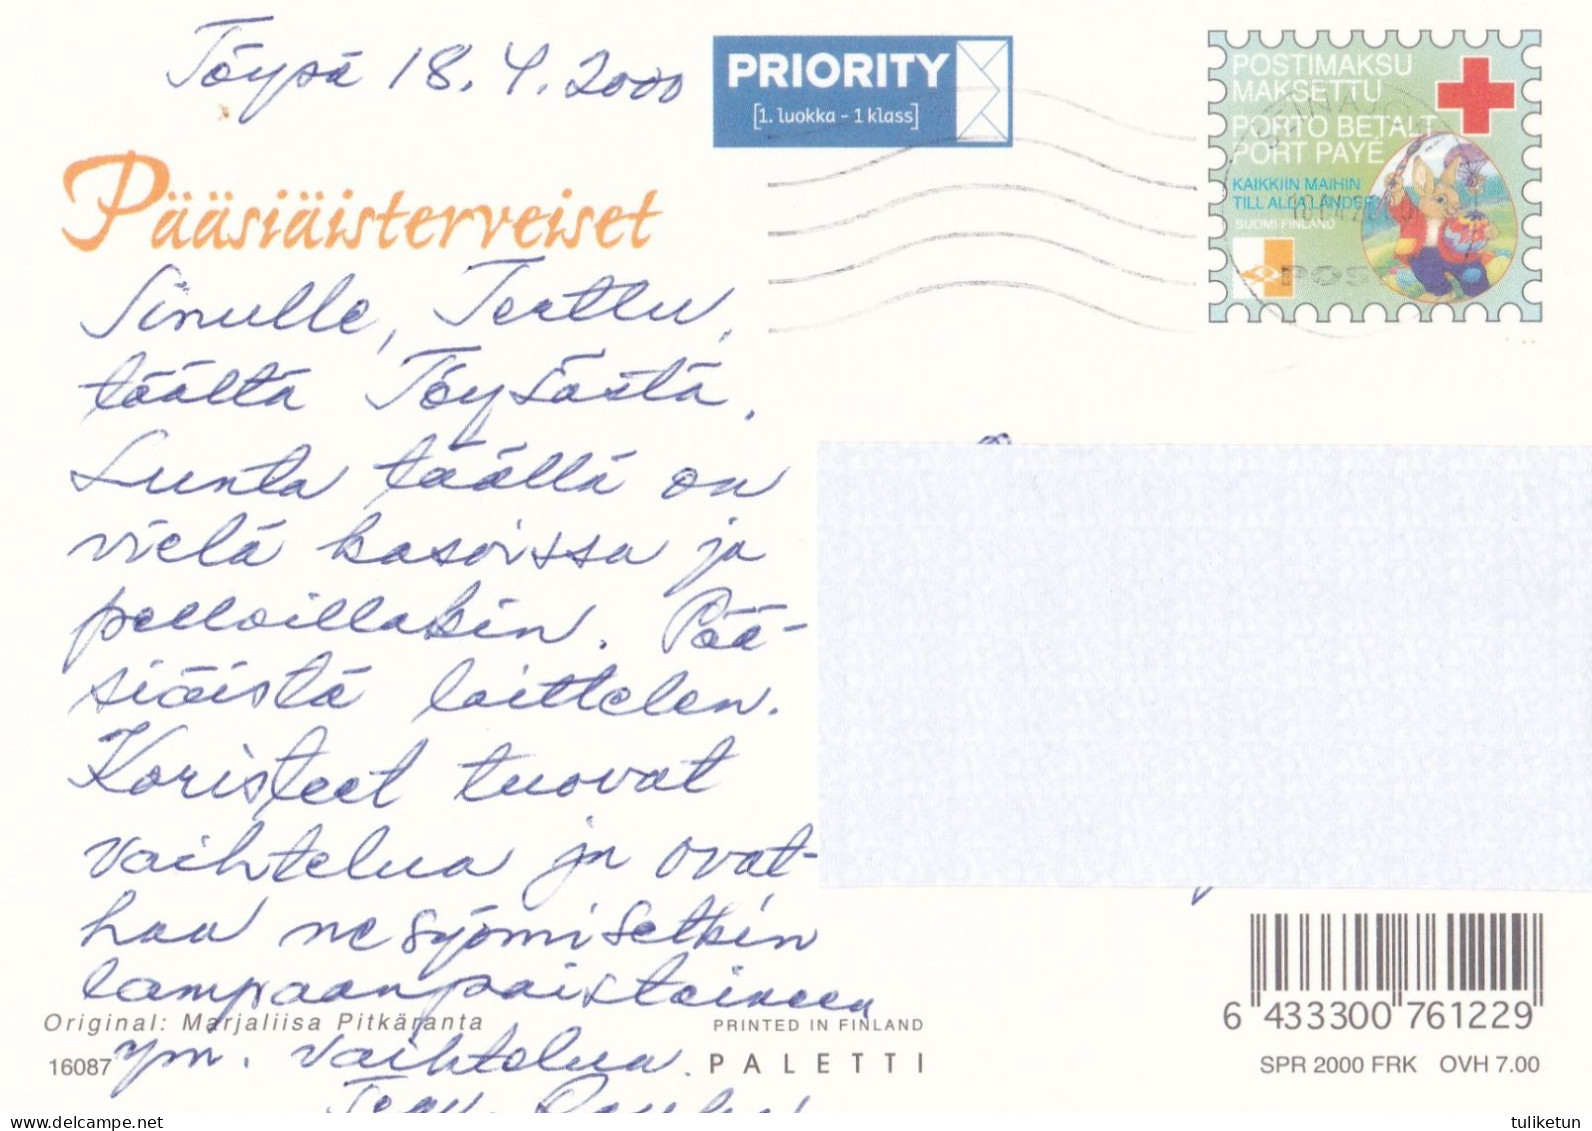 Töysä 18.4.2000
PRIORITY
[1. luokka - 1 klass]
POSTIMAKSU
MAKSETTU
PORTO BETALT
PORT PAYÉ
KAIKKIIN MAIHIN
TILL ALLA LÄNDER
SUOMI FINLAND
Pääsiäisterveiset
Sinulle, Terttu,
täältä Töysästä.
Lunta täällä on
vielä kasoissa ja
pelloillakin. Pää-
siäistä laittelen.
Koristeet tuovat
vaihtelua ja ovat-
han ne syömisetkin
lampaanpaisteineen
ym. vaihtelua.
Original: Marjaliisa Pitkäranta
16087
PRINTED IN FINLAND
PALETTI
6 433300 761229
SPR 2000 FRK OVH 7.00
tuliketun